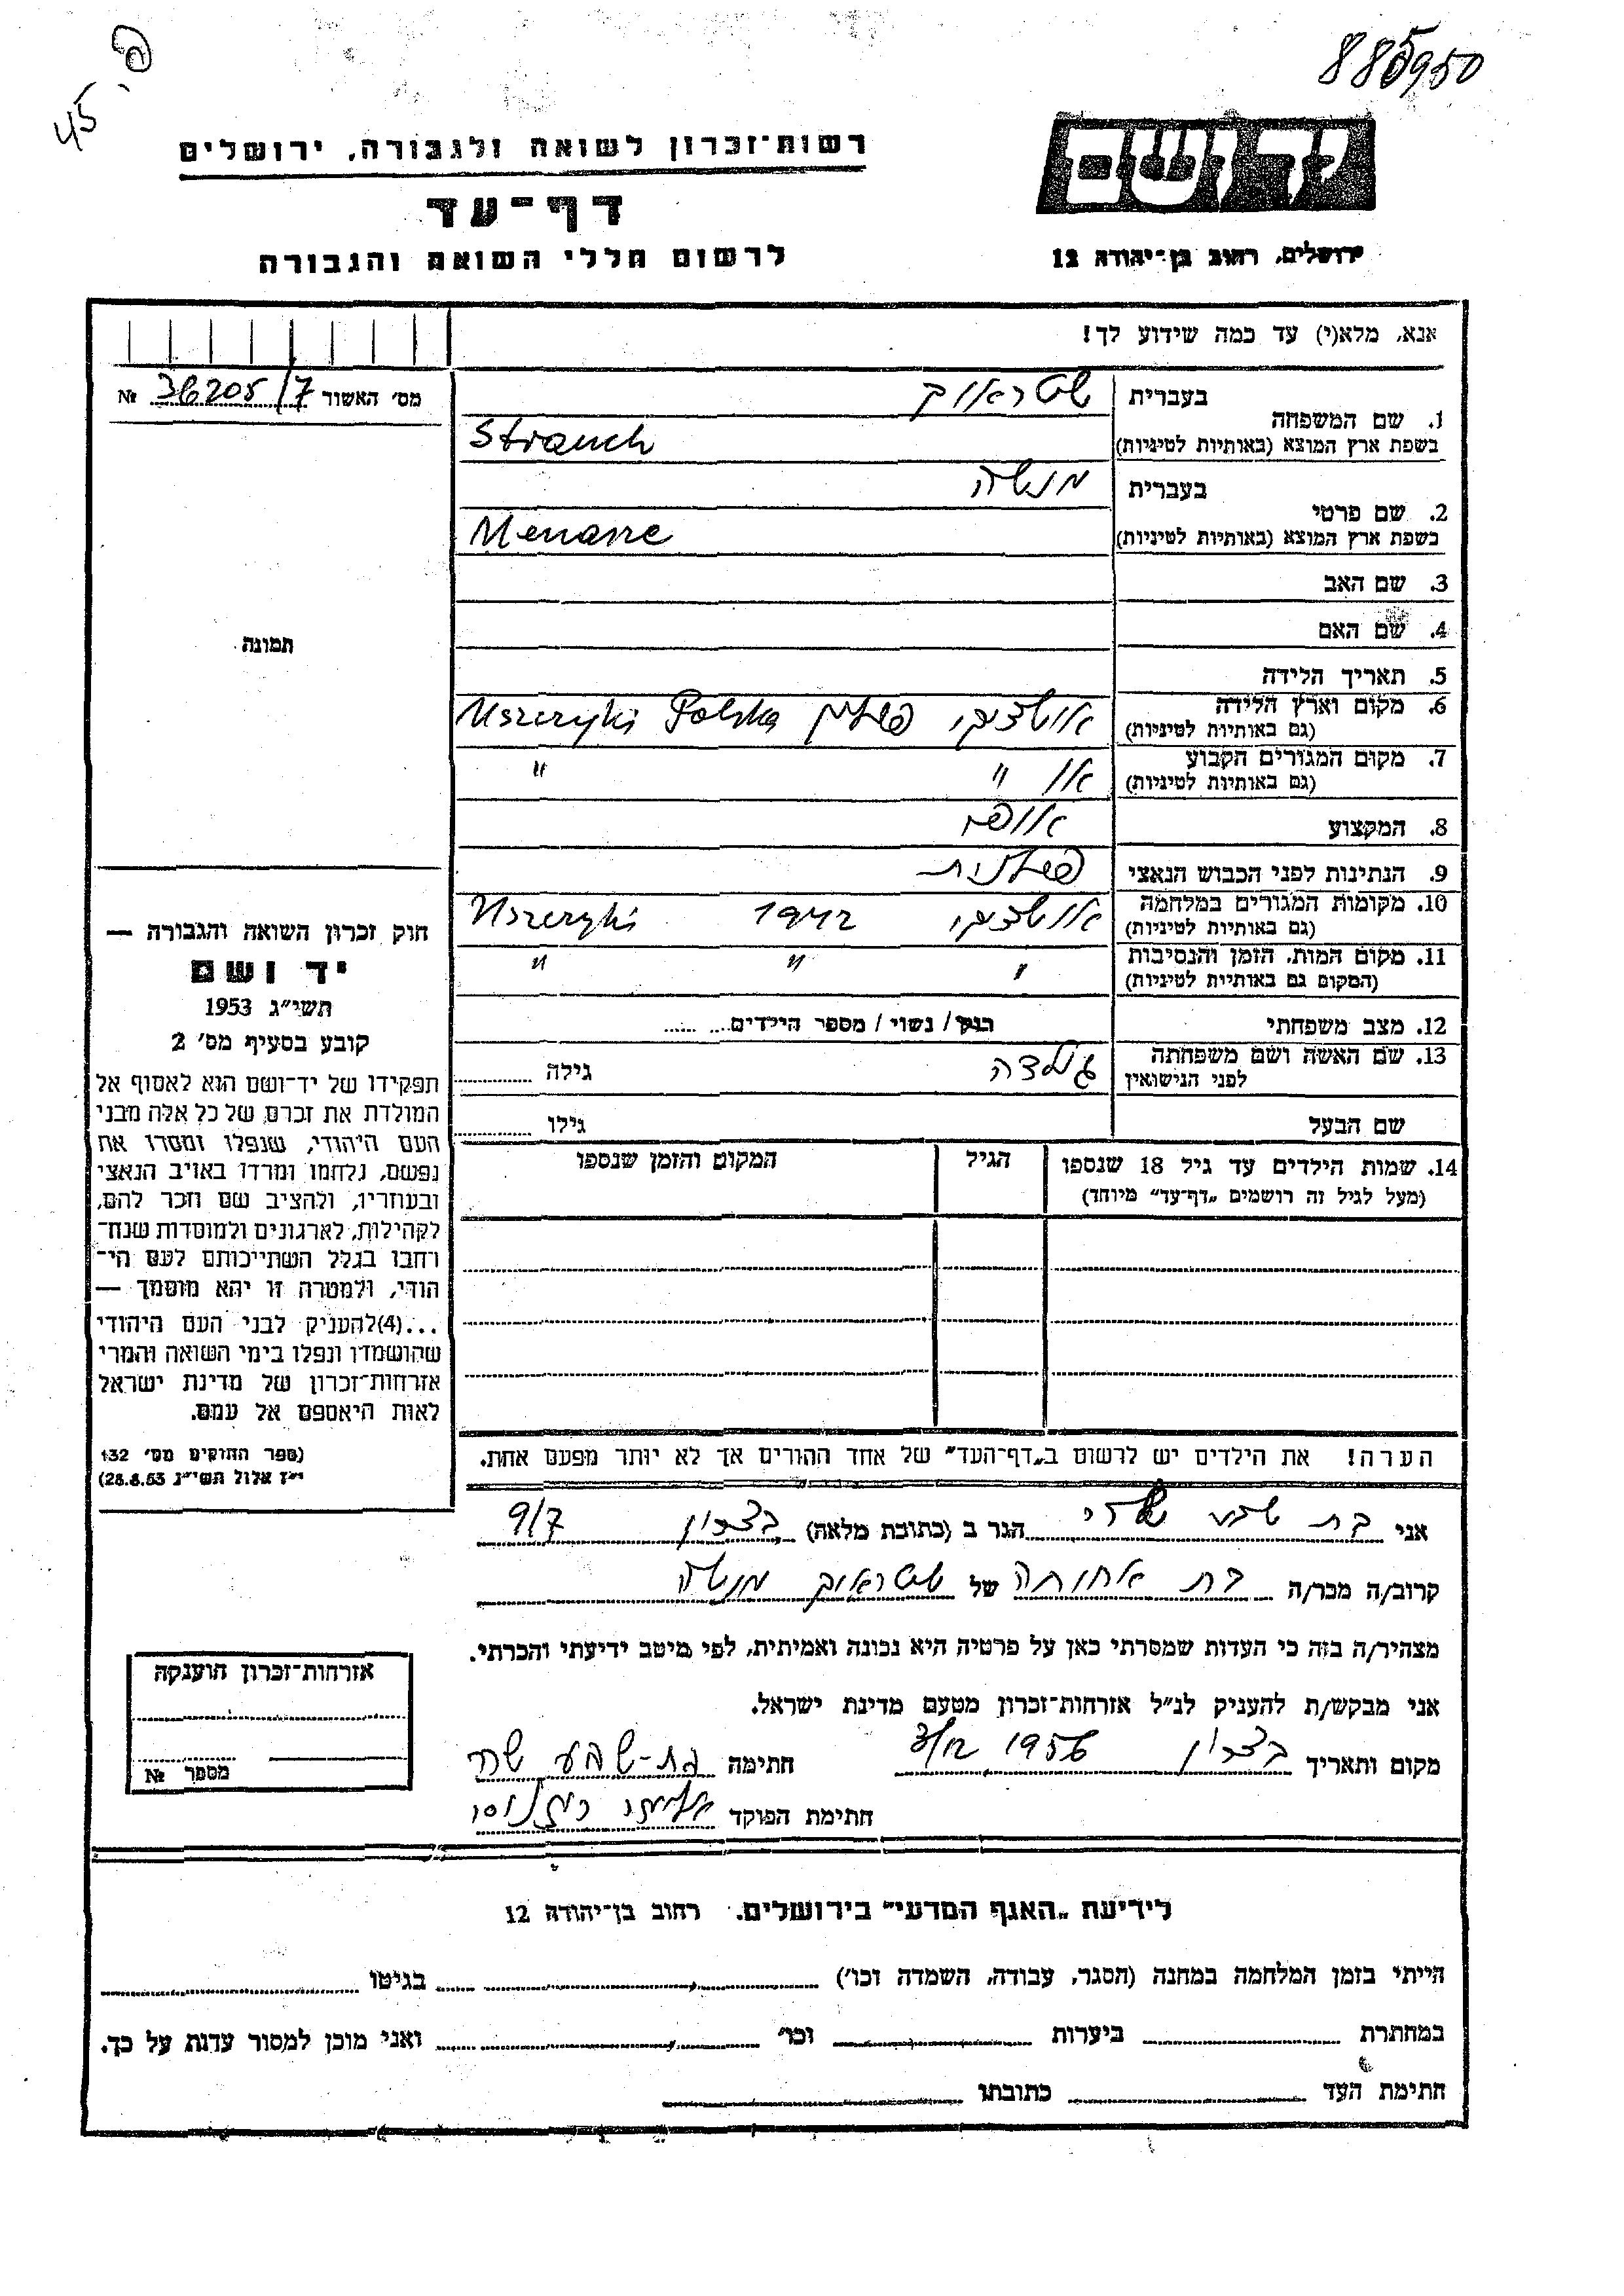 885950
45
פ.
רשות-זכרון לשואה ולגבורה, ירושלים
דף-עד
לרשום חללי השואה והגבורה
יד ושם
ירושלים, רחוב בן-יהודה 12
אנא, מלא(י) עד כמה שידוע לך!
מס' האשור № 36205/7
תמונה
1. שם המשפחה
בעברית שטראוך
בשפת ארץ המוצא (באותיות לטיניות) Strauch
2. שם פרטי
בעברית מנשה
בשפת ארץ המוצא (באותיות לטיניות) Menasze
3. שם האב
4. שם האם
5. תאריך הלידה
6. מקום וארץ הלידה
(גם באותיות לטיניות) פולין Uszczyki Polska
7. מקום המגורים הקבוע
(גם באותיות לטיניות) " "
8. המקצוע אופה
9. הנתינות לפני הכבוש הנאצי פולנית
10. מקומות המגורים במלחמה
(גם באותיות לטיניות) 1942 Uszczyki
11. מקום המות, הזמן והנסיבות
(המקום גם באותיות לטיניות) " " "
12. מצב משפחתי רוק / נשוי / מספר הילדים
13. שם האשה ושם משפחתה
לפני הנישואין גולדה גילה
שם הבעל גילו
14. שמות הילדים עד גיל 18 שנספו הגיל המקום והזמן שנספו
(מעל לגיל זה רושמים „דף-עד" מיוחד)
הערה! את הילדים יש לרשום ב„דף-העד" של אחד ההורים אך לא יותר מפעם אחת.
חוק זכרון השואה והגבורה —
יד ושם
תשי"ג 1953
קובע בסעיף מס' 2
תפקידו של יד-ושם הוא לאסוף אל
המולדת את זכרם של כל אלה מבני
העם היהודי, שנפלו ומסרו את
נפשם, נלחמו ומרדו באויב הנאצי
ובעוזריו, ולהציב שם וזכר להם,
לקהילות, לארגונים ולמוסדות שנח-
רבו בגלל השתייכותם לעם הי-
הודי, ולמטרה זו יהא מוסמך —
...(4)להעניק לבני העם היהודי
שהושמדו ונפלו בימי השואה והמרי
אזרחות-זכרון של מדינת ישראל
לאות היאספם אל עמם.
(ספר החוקים מס' 132
י"ז אלול תשי"ג 28.8.53)
אני בת שבע שדרי הגר ב (כתובת מלאה) בצרון 9/7
קרוב/ה מכר/ה בת אחותה של שטראוך מנשה
מצהיר/ה בזה כי העדות שמסרתי כאן על פרטיה היא נכונה ואמיתית, לפי מיטב ידיעתי והכרתי.
אני מבקש/ת להעניק לנ"ל אזרחות-זכרון מטעם מדינת ישראל.
מקום ותאריך בצרון 3/12 1956 חתימה בת-שבע
חתימת הפוקד
אזרחות-זכרון הוענקה
מספר №
לידיעת „האגף המדעי" בירושלים. רחוב בן-יהודה 12
הייתי בזמן המלחמה במחנה (הסגר, עבודה, השמדה וכו') בגיטו
במחתרת ביערות וכו' ואני מוכן למסור עדות על כך.
חתימת העד כתובתו